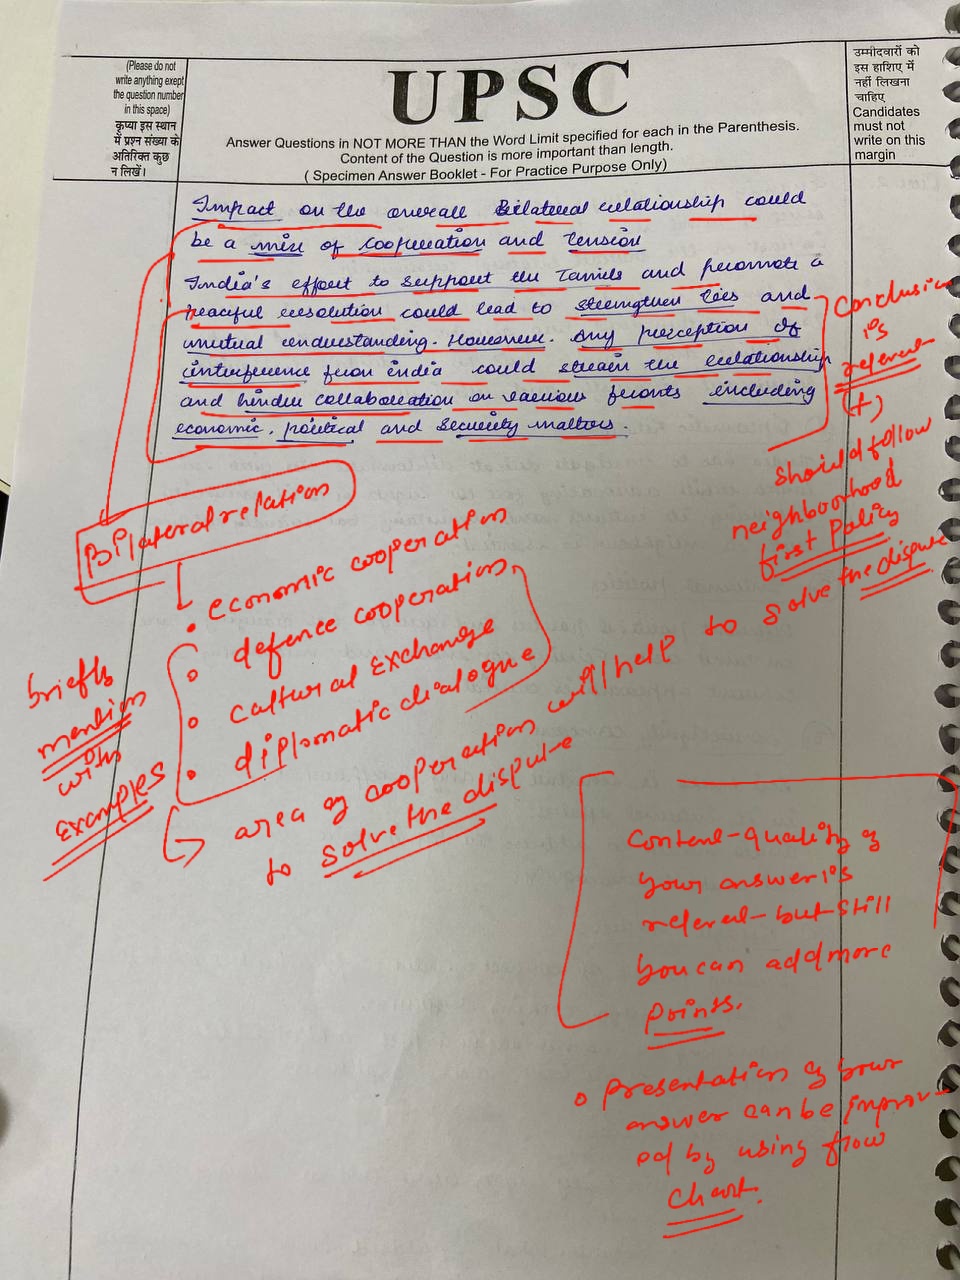 (Please do not
write anything exept
the question number
in this space)
कृप्या इस स्थान
में प्रश्न संख्या के
अतिरिक्त कुछ
न लिखें।
UPSC
Answer Questions in NOT MORE THAN the Word Limit specified for each in the Parenthesis.
Content of the Question is more important than length.
( Specimen Answer Booklet - For Practice Purpose Only)
उम्मीदवारों को
इस हाशिए में
नहीं लिखना
चाहिए
Candidates
must not
write on this
margin
Impact on the overall Bilateral relationship could
be a mix of cooperation and tension
India's effort to support the Tamils and promote a
peaceful resolution could lead to strengthen ties and
mutual understanding. However. any perception of
interference from india could strain the relationship
and hinder collaboration on various fronts including
economic, political and security matters.
Conclusion
is
relevant
(+)
should follow
neighboorhood
first Policy
to solve the dispute
Bilateral relation
• economic cooperation
• defence cooperation
• cultural exchange
• diplomatic dialogue
briefly
mention
with
examples
area of cooperation will help
to solve the dispute
Content-quality of
your answer is
relevent but still
you can add more
points.
• Presentation of your
answer can be improv-
ed by using flow
chart.